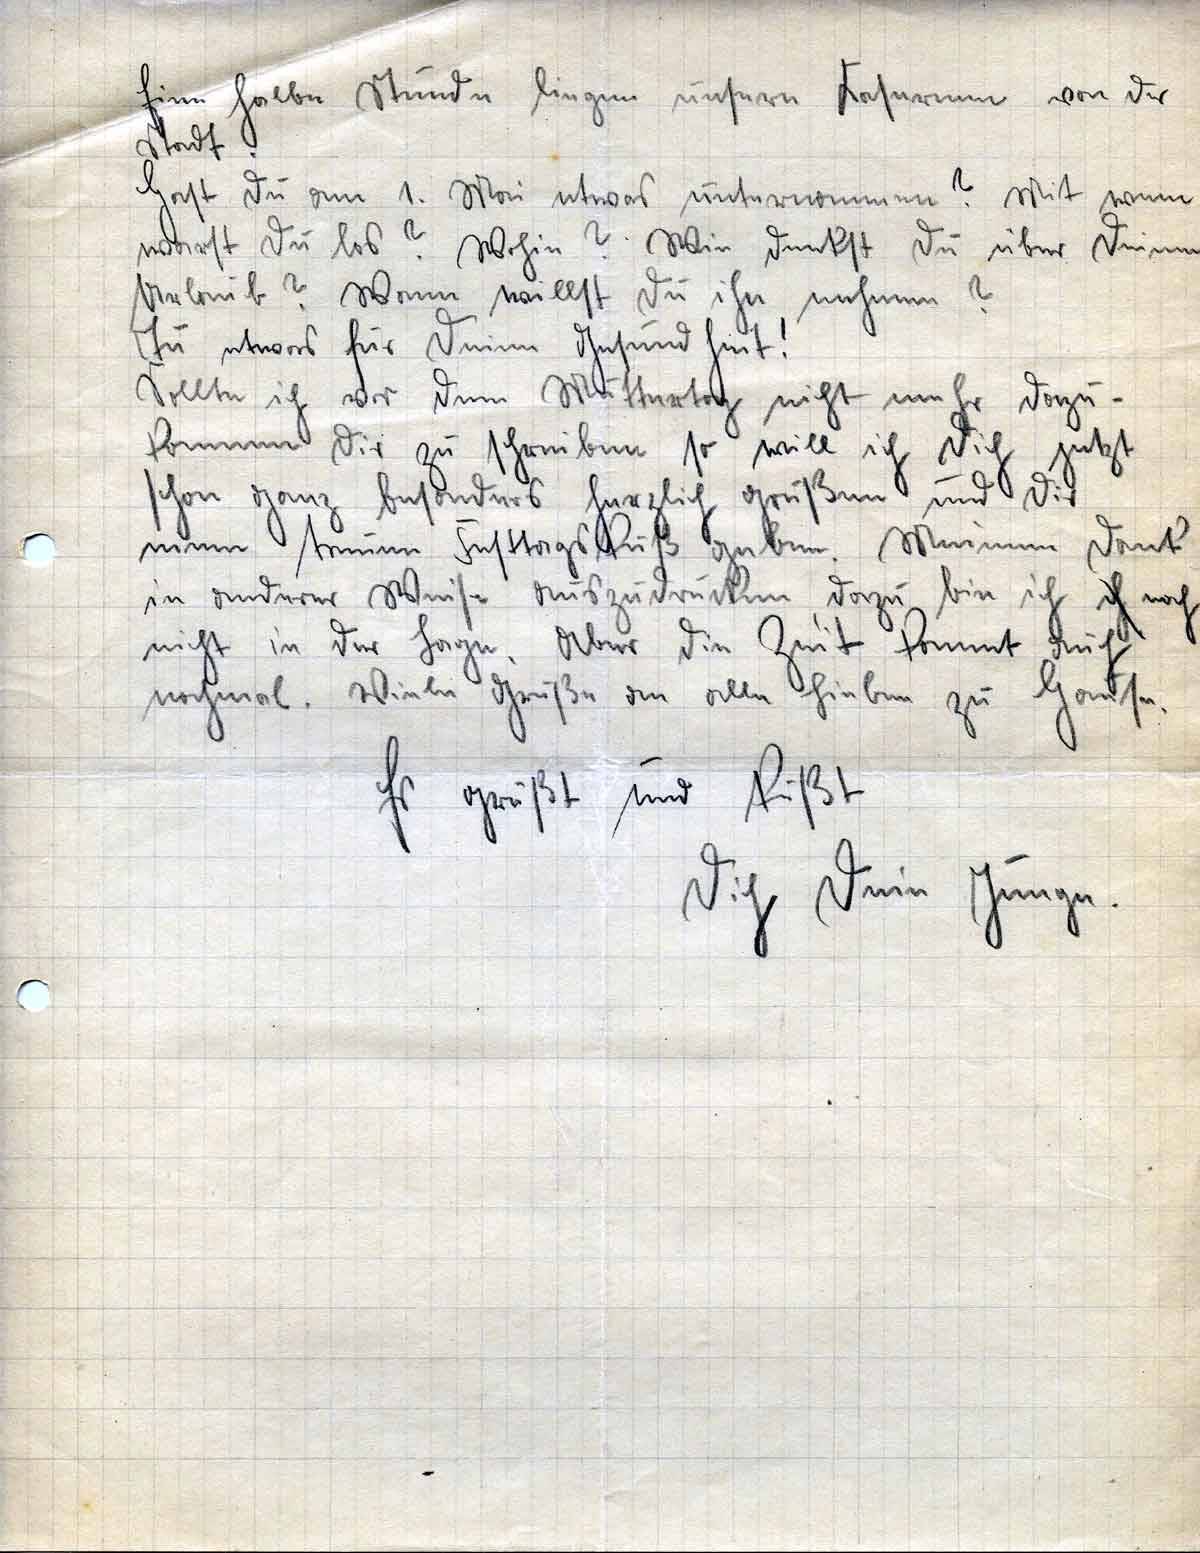 Eine halbe Stunde liegen unsere Kasernen von der
Stadt.
Hast Du am 1. Mai etwas unternommen? Mit wem
warst Du los? Wohin? Wie denkst Du über Deinen
Urlaub? Wann willst Du ihn nehmen?
Tu etwas für Deine Gesundheit!
Sollte ich vor dem Muttertag nicht mehr dazu-
kommen Dir zu schreiben so will ich Dich jetzt
schon ganz besonders herzlich grüßen und Dir
einen treuen Festtagskuß geben. Meinen Dank
in anderer Weise auszudrücken, dazu bin ich noch
nicht in der Lage. Aber die Zeit kommt auch
nochmal. Viele Grüße an alle Lieben zu Hause.
Es grüßt und küßt
Dich Dein Junge.